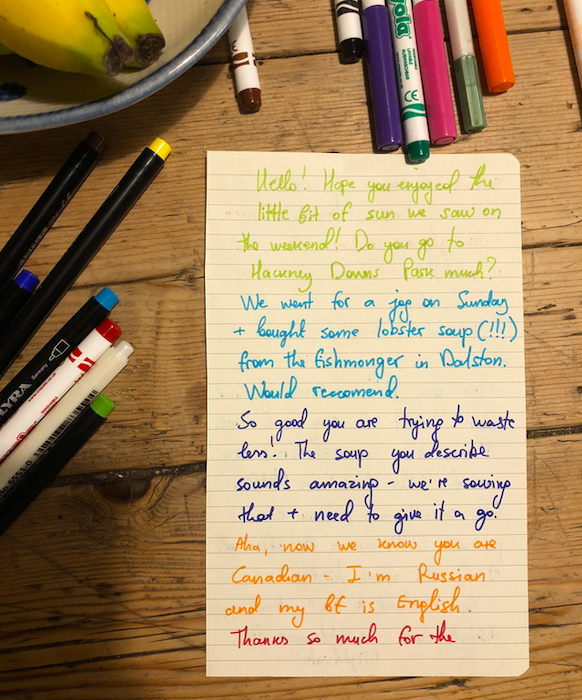 Hello! Hope you enjoyed the
little bit of sun we saw on
the weekend! Do you go to
Hackney Downs Park much?
We went for a jog on Sunday
+ bought some lobster soup (!!!)
from the fishmonger in Dalston.
Would reccomend.
So good you are trying to waste
less! The soup you describe
sounds amazing - we're saving
that + need to give it a go.
Aha, now we know you are
Canadian - I'm Russian
and my bf is English.
Thanks so much for the
LYRA
Germany
yola
CE